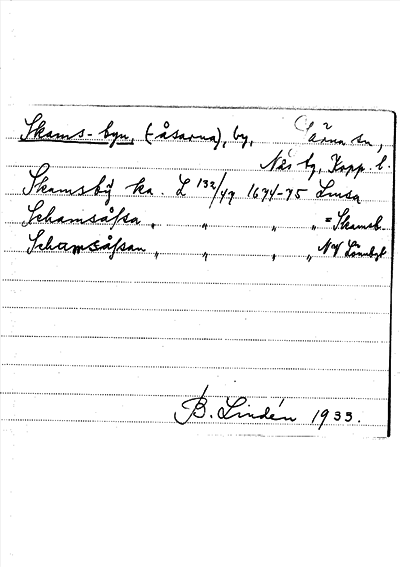 Skams-byn, (-åsarna), by, Järna sn,
Nås tg, Kopp. l.
Skamsbÿ ka. L 132/49 1674-75 Limsa
Schamsåssa „ „ „ „ = Skamsb.
Schamsåssan „ „ „ „ NV Lönnbyl
B. Lindén 1933.